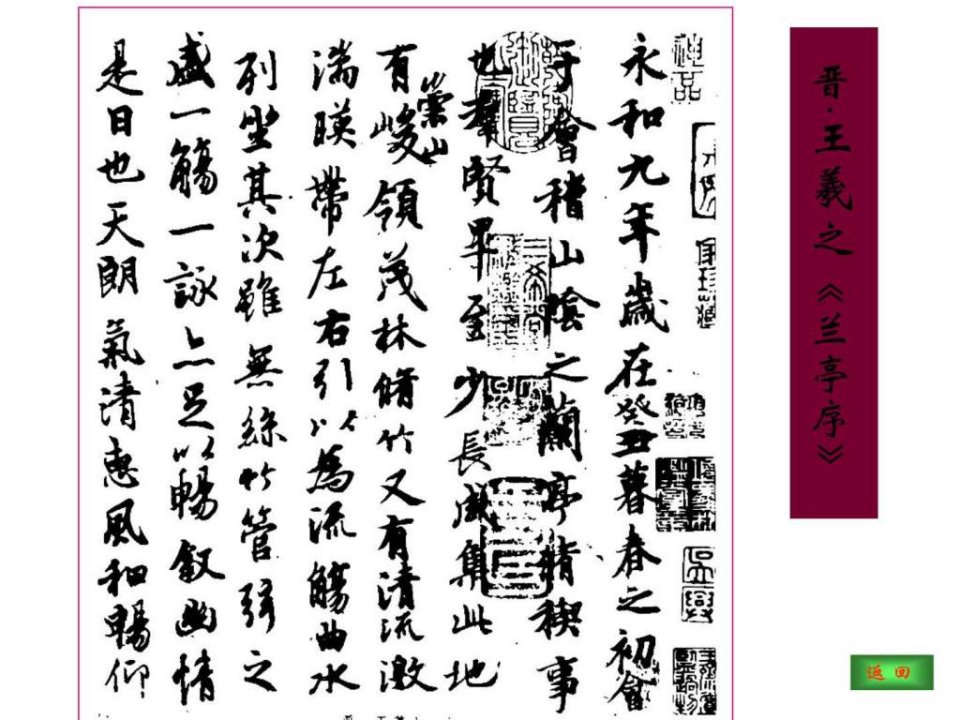 晋·王羲之《兰亭序》
神品
永和九年歲在癸丑暮春之初會
于會稽山陰之蘭亭脩稧事
也羣賢畢至少長咸集此地
有崇山峻領茂林脩竹又有清流激
湍暎帶左右引以為流觴曲水
列坐其次雖無絲竹管弦之
盛一觴一詠亦足以暢叙幽情
是日也天朗氣清惠風和暢仰
返回